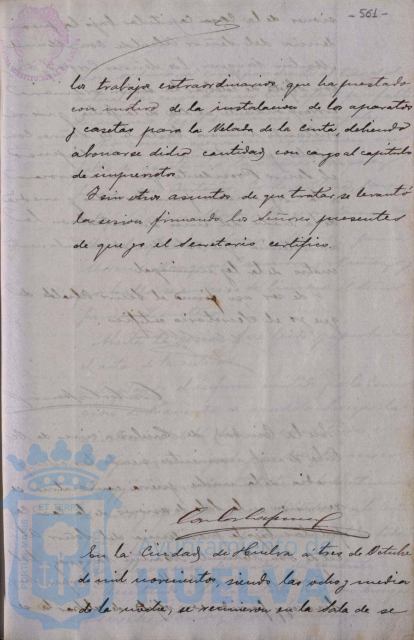 - 561 -
los trabajos extraordinarios que ha prestado
con motivo de la instalacion de los aparatos
y casetas para la Velada de la Cinta, debiendo
abonarse dicha cantidad con cargo al capitulo
de imprevistos.
I sin otros asuntos de que tratar se levantó
la sesion firmando los Señores presentes
de que yo el Secretario certifico.
En la Ciudad de Huelva á tres de Octubre
de mil novecientos, siendo las ocho y media
de la noche, se reunieron en la Sala de se
Ayuntamiento de
HUELVA